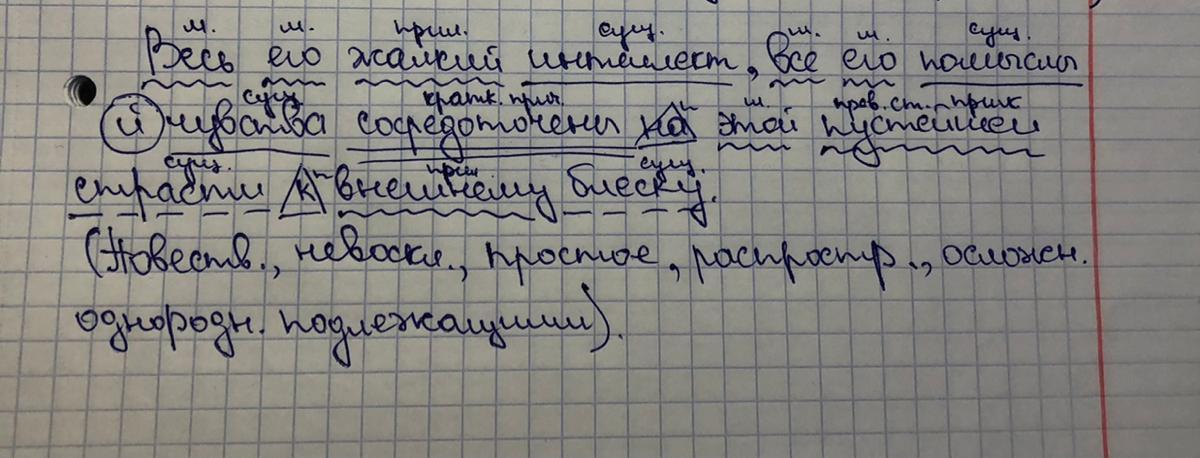 м. м. прил. сущ. м. м. сущ.
Весь его жалкий интеллект, все его помыслы
сущ. кратк. прич. п м. прев. ст. прил
и чувства сосредоточены на этой пустейшей
сущ. п прил сущ.
страсти к внешнему блеску.
(Повеств., невоскл., простое, распростр., осложн.
однородн. подлежащими).